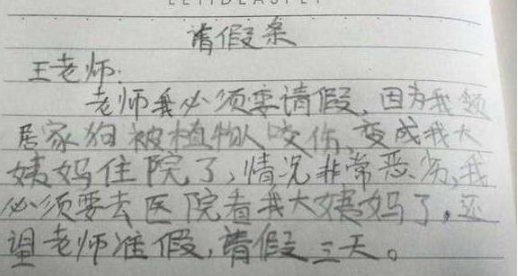 请假条
王老师:
老师我必须要请假,因为我领
居家狗被植物人咬伤,变成我大
姨妈住院了,情况非常恶劣,我
必须要去医院看我大姨妈了,还
望老师准假,请假三天。